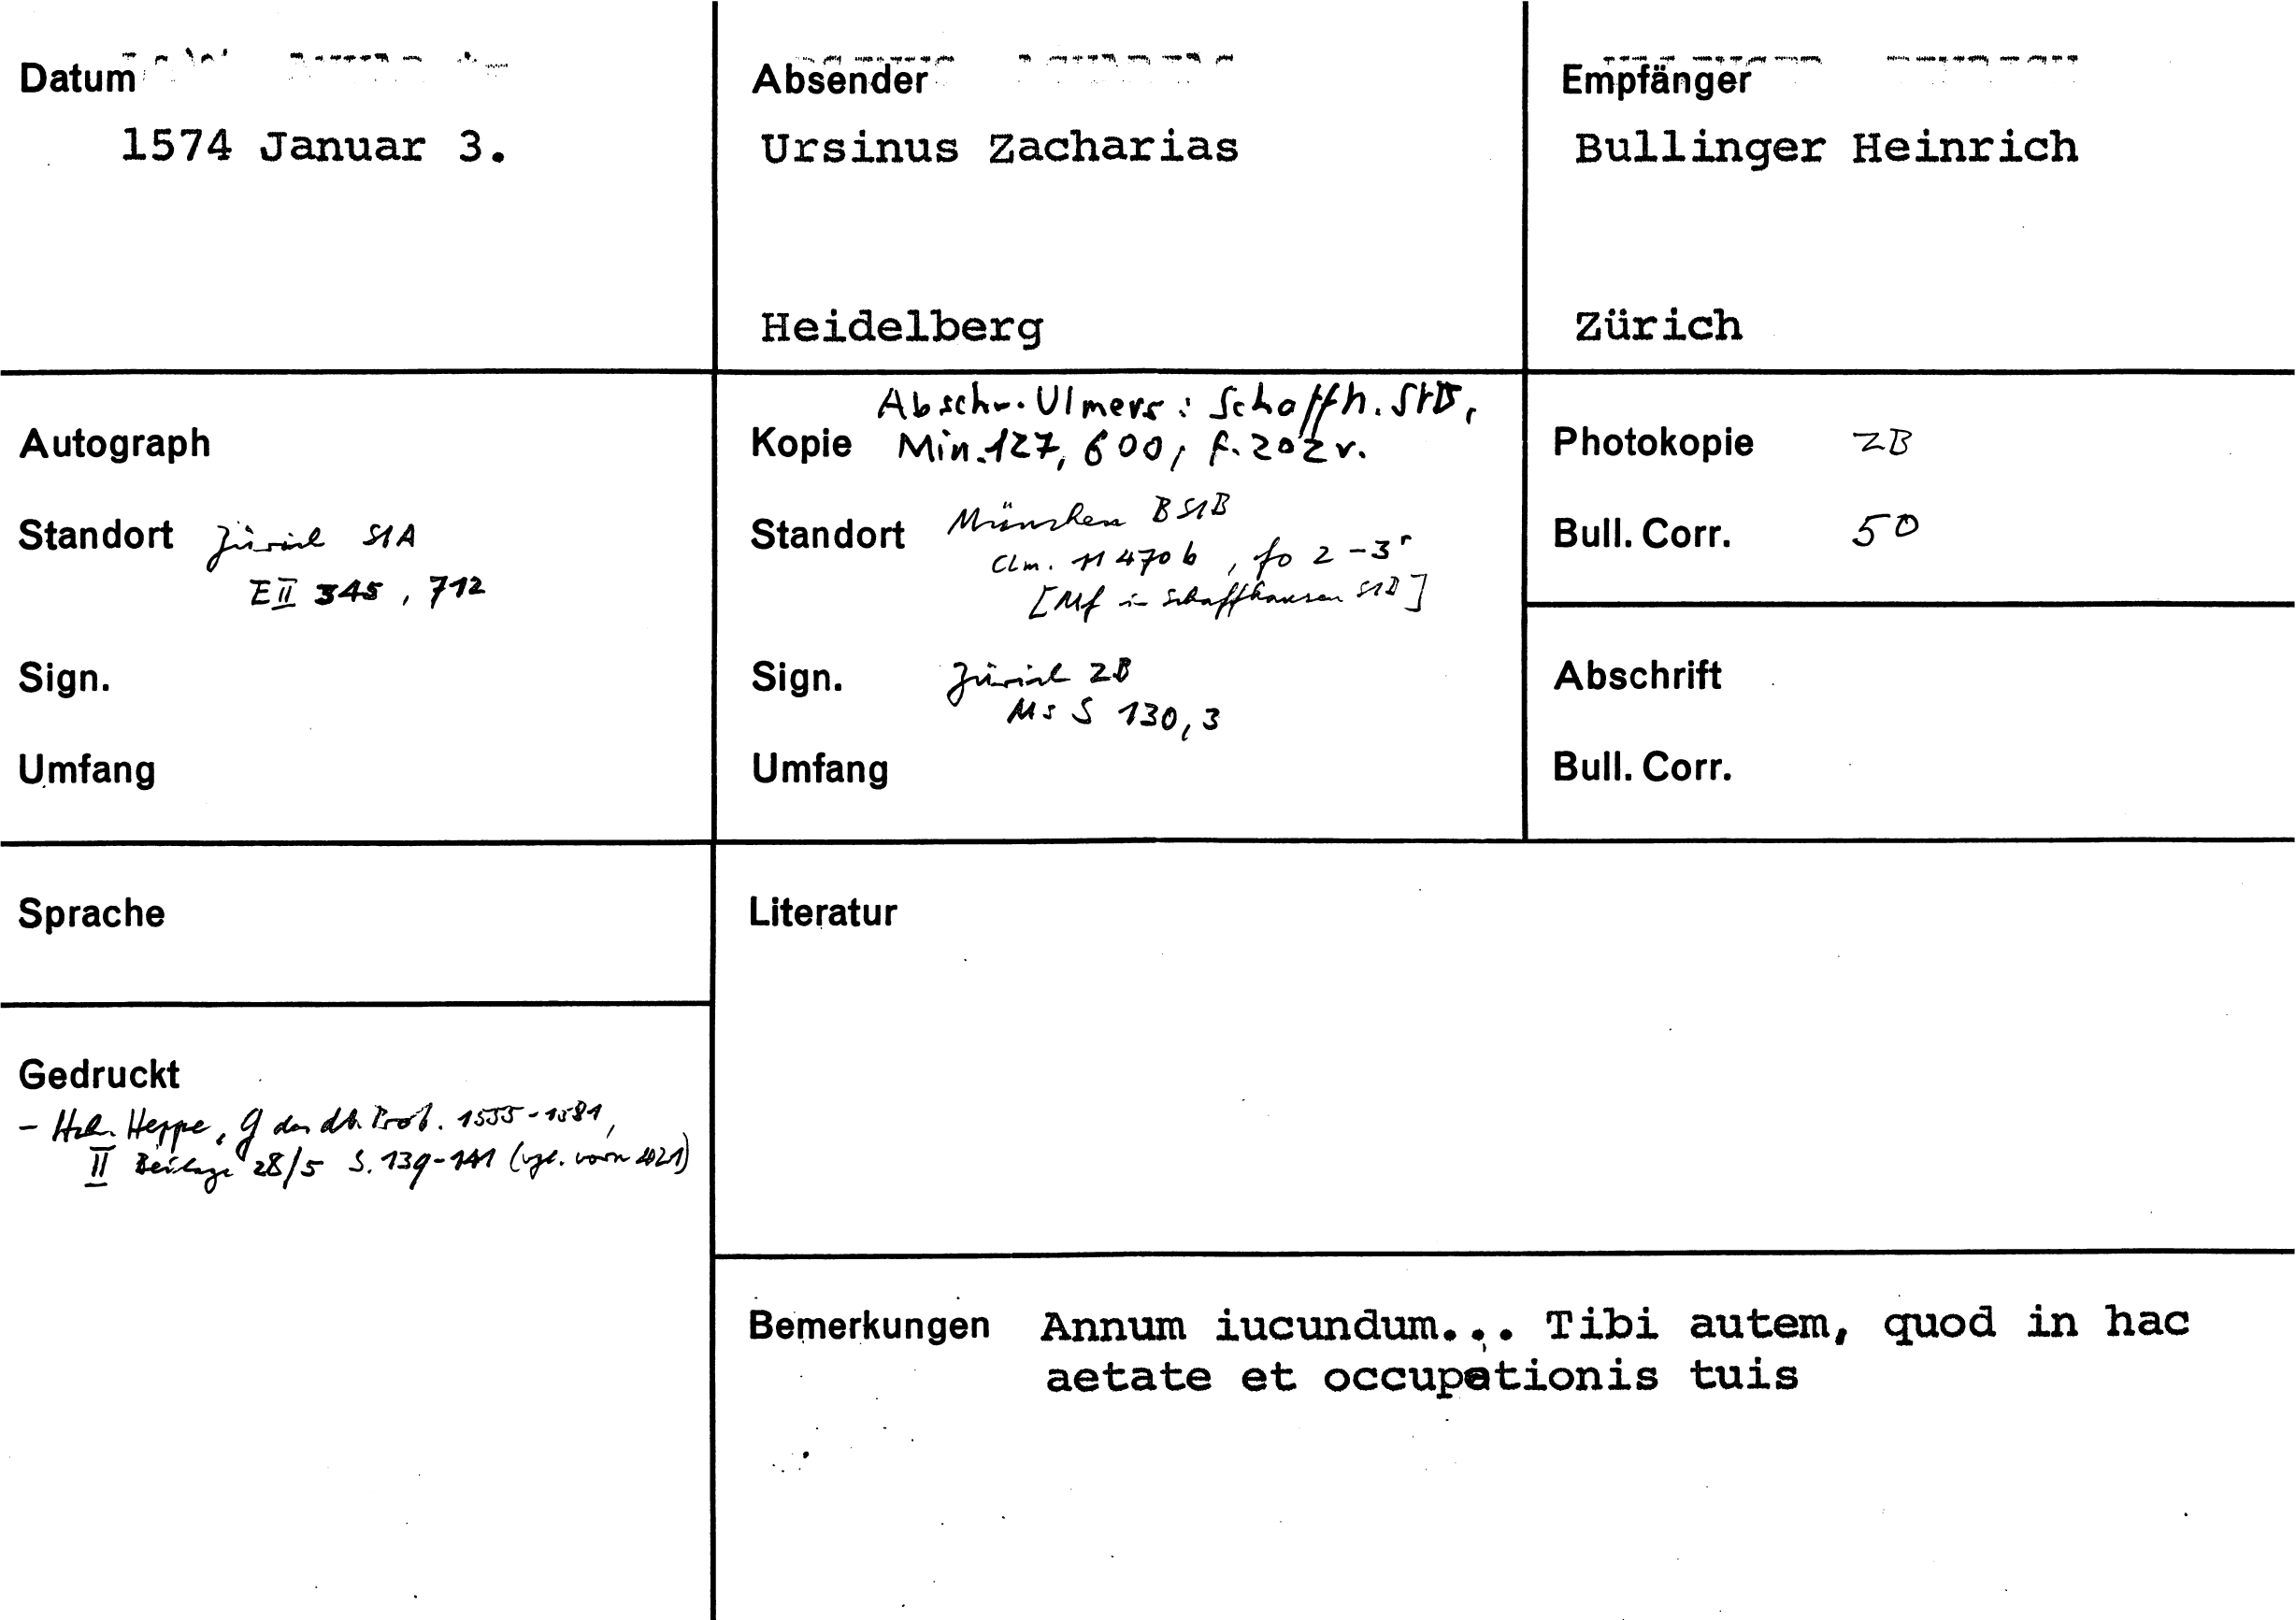 Datum
1574 Januar 3.
Absender
Ursinus Zacharias
Heidelberg
Empfänger
Bullinger Heinrich
Zürich
Autograph
Standort Zürich StA
E II 345, 712
Sign.
Umfang
Abschr. Ulmers: Schaffh. StB,
Kopie Min. 127, 600, f. 202 v.
Standort München BStB
Clm. 11470 b, fo 2-3r
[Mf in Schaffhausen StB]
Sign. Zürich ZB
Ms S 130, 3
Umfang
Photokopie ZB
Bull. Corr. 50
Abschrift
Bull. Corr.
Sprache
Gedruckt
- Heppe, G des dt. Prot. 1555-1581,
II Beilage 28/5 S. 139-141 (vgl. vorn
Literatur
Bemerkungen Annum iucundum... Tibi autem, quod in hac
aetate et occupationis tuis